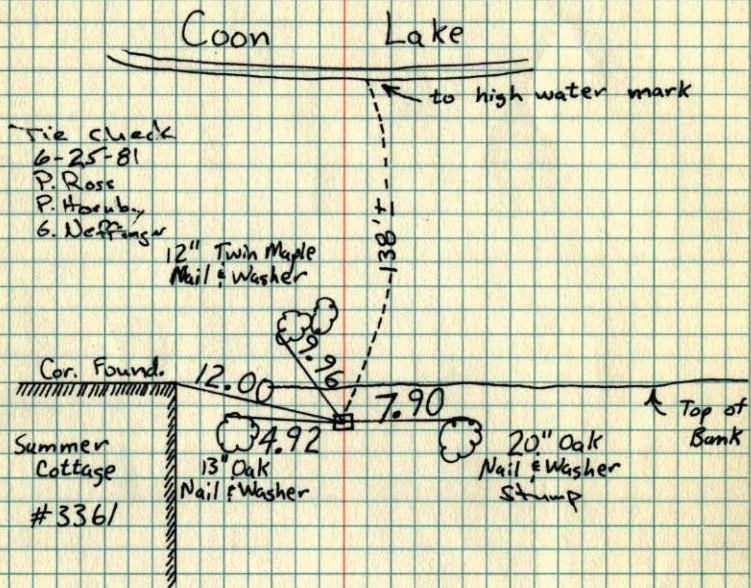 Coon Lake
to high water mark
Tie check
6-25-81
P. Ross
P. Hornby
G. Neffinger
138'±
12" Twin Maple
Nail & Washer
9.96
Cor. Found.
12.00
7.90
Top of
Bank
4.92
Summer
Cottage
#3361
13" Oak
Nail & Washer
20" Oak
Nail & Washer
Stump